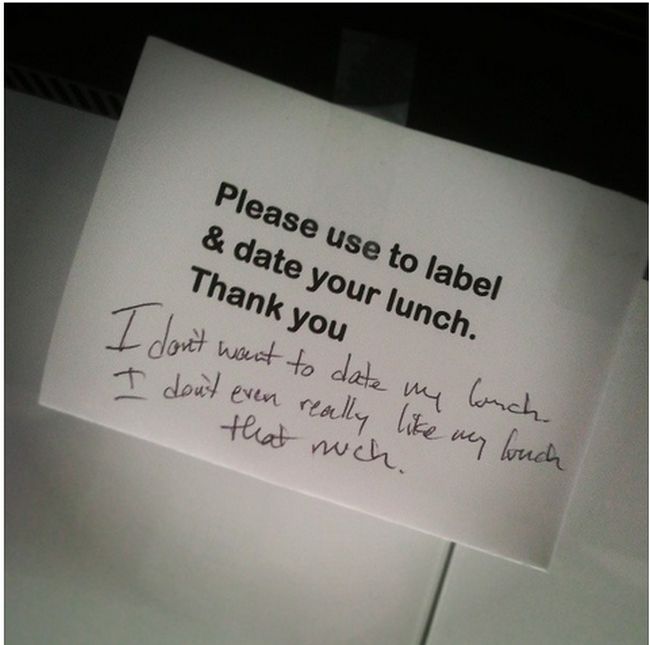 Please use to label
& date your lunch.
Thank you
I don't want to date my lunch.
I don't even really like my lunch
that much.